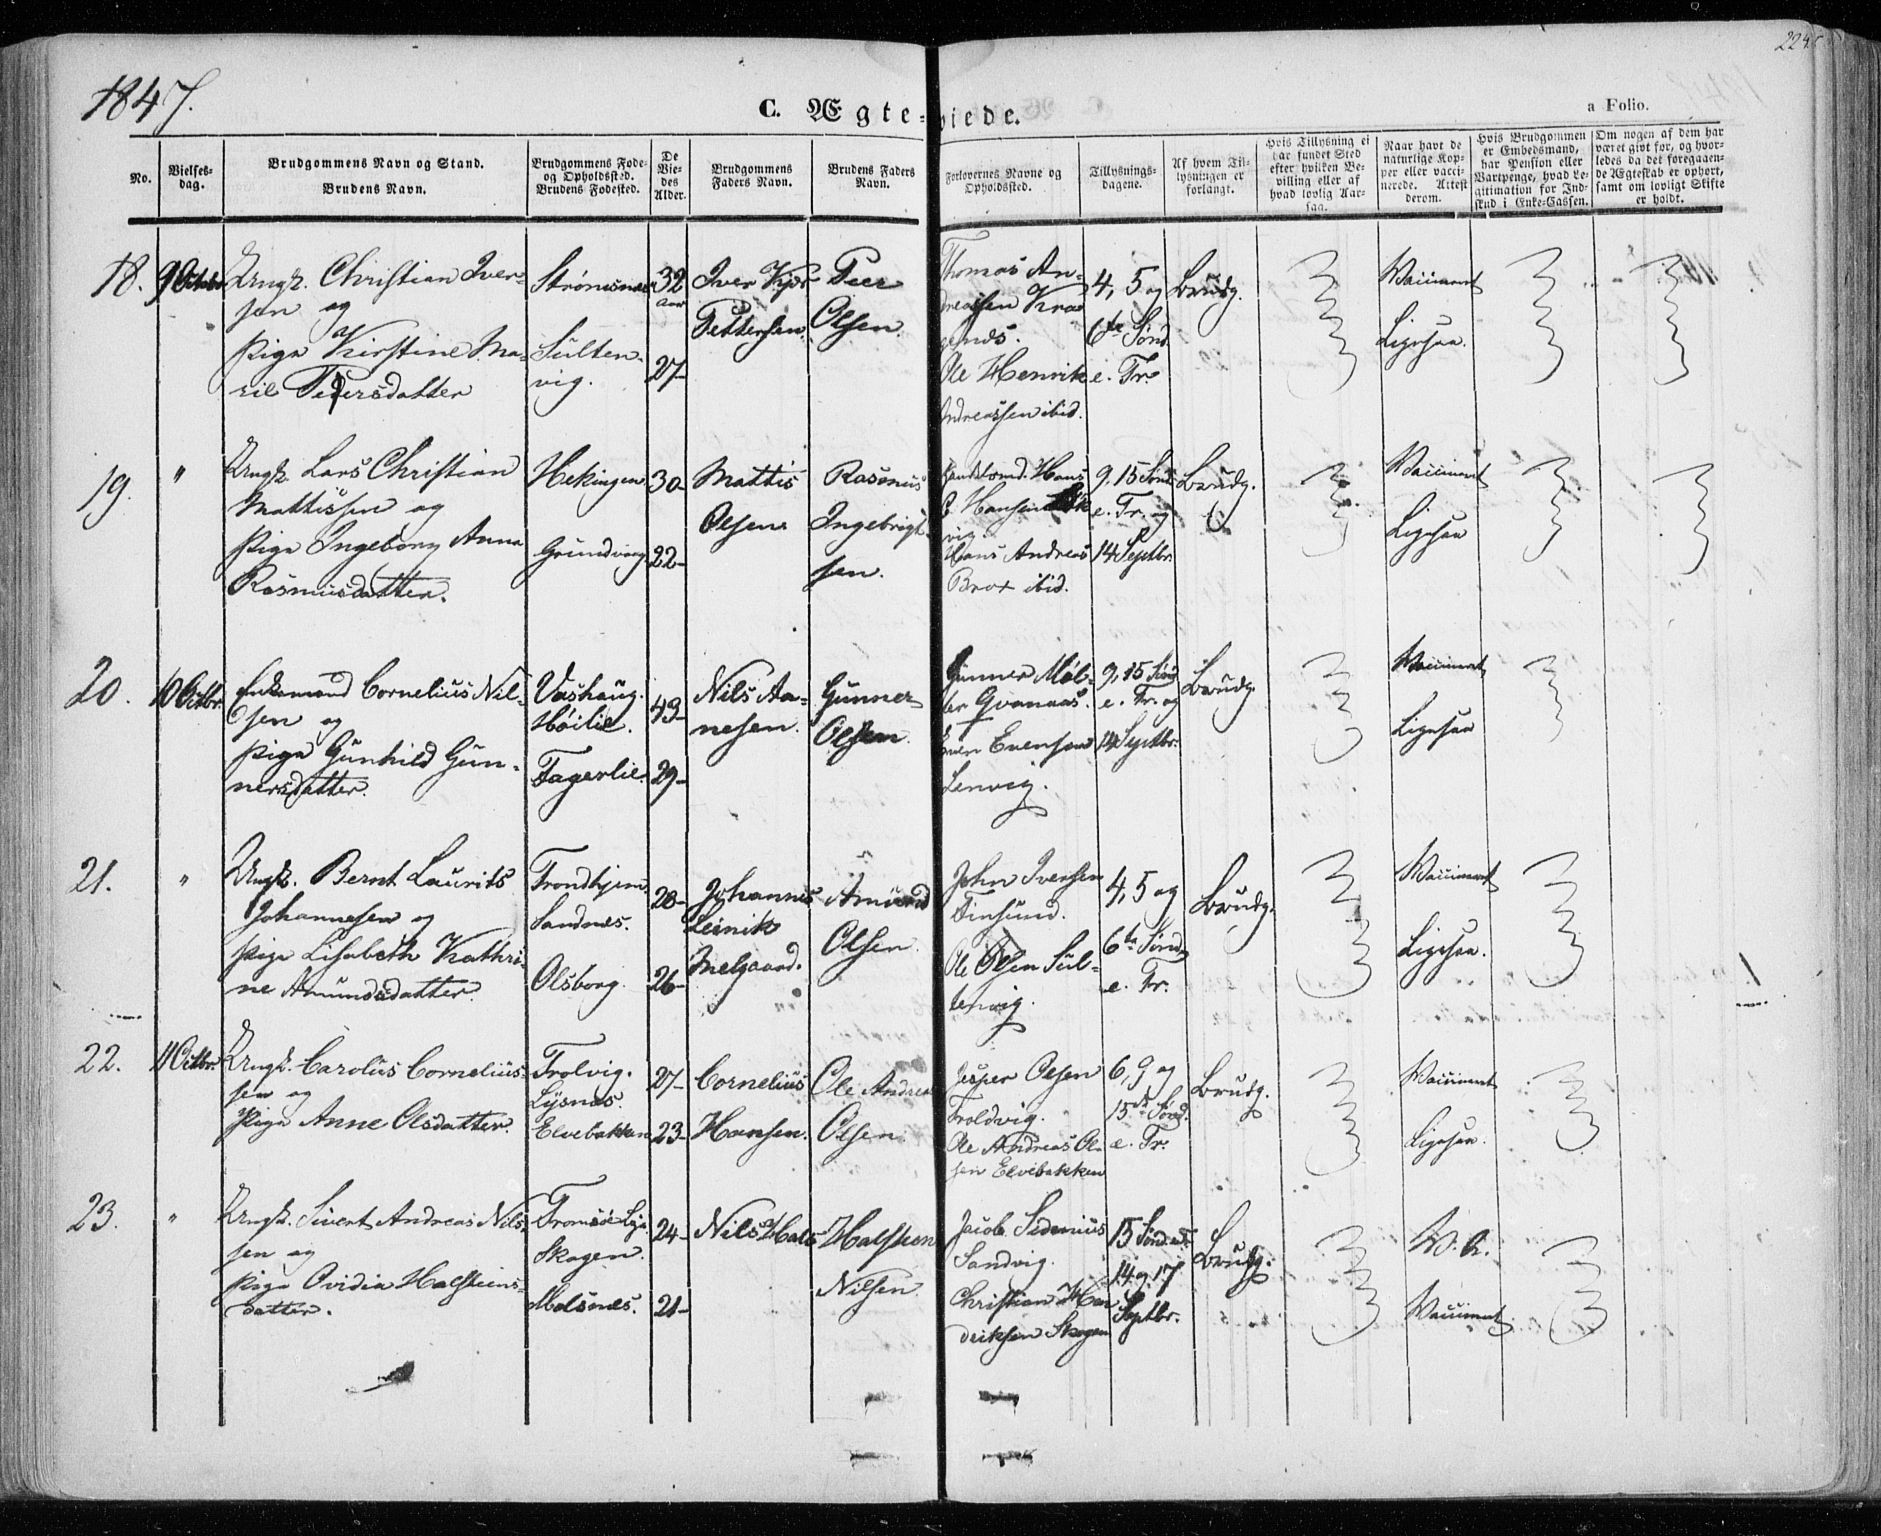 224
1847.
C. Ægteviede.
a Folio.
No.
Vielses-
dag.
Brudgommens Navn og Stand.
Brudens Navn.
Brudgommens Føde-
og Opholdssted.
Brudens Fødested.
De
Vie-
des
Alder.
Brudgommens
Faders Navn.
Brudens Faders
Navn.
Forlovernes Navne og
Opholdssted.
Tillysnings-
dagene.
Af hvem Til-
lysningen er
forlangt.
Hvis Tillysning ei
har fundet Sted
efter hvilken Be-
villing eller af
hvad lovlig Aar-
sag.
Naar havt de
naturlige Kop-
per eller vacci-
nerede. Attest
derom.
Hvis Brudgommen
er Embedsmand,
har Pension eller
Vartpenge, hvad Le-
gitimation for Ind-
skud i Enke-Cassen.
Om nogen af dem har
været givt før, og hvor-
ledes da det foregaaen-
de Ægteskab er ophørt,
samt om lovligt Skifte
er holdt.
18.
9 Octobr
Ungk. Christian Iver-
sen og
Pige Kirstine Ma-
rie Pedersdatter
Strømsnes
Sulten-
vig.
32
aar
27-
Iver
Pettersen
Peer
Olsen.
Thomas An-
dreassen
Ole Henrik
Andreassen ibid.
4, 5 og
6te Sønd.
e. Tr.
Brudg.
Vaccineret
Ligesaa.
19.
"
Ungk. Lars Christian
Mattissen og
Pige Ingeborg Anna
Rasmusdatter.
Hekingen
Grundvaag
30-
22-
Mattis
Olsen
Rasmus
Ingebrigt-
sen.
Hans
Hansen
vig.
Hans Andreas
Brox ibid.
9, 15 Sønd
e. Tr. og
14 Septbr.
Brudg.
Vaccineret
Ligesaa
20.
10 Octbr.
Enkemand Cornelius Nil-
sen og
Pige Gunhild Gun-
nersdatter.
Vashaug.
Høilie.
Fagerlie
43-
29-
Nils Aa-
nesen.
Gunner
Olsen.
Gunner Møl-
ler
Even Evensen
Lenvig.
9, 15 Sønd
e. Tr. og
14 Septbr.
Brudg.
Vaccineret
Ligesaa
21.
"
Ungk. Bernt Laurits
Johannesen og
Pige Lisabeth Kathri-
ne Amundsdatter.
Trondhjem
Sandnes.
Olsborg.
28-
26-
Johannes
Melgaard.
Amund
Olsen.
John Iversen
Finsund.
Ole Olsen Sul-
tenvig.
4, 5 og
6te Sønd.
e. Tr.
Brudg.
Vaccineret
Ligesaa.
22.
11 Octbr.
Ungk. Carolus Cornelius-
sen og
Pige Anne Olsdatter.
Trolvig.
Lysnes.
Elvebakken
27-
23-
Cornelius
Hansen.
Ole Andreas
Olsen.
Jesper Olsen
Troldvig.
Ole Andreas Ol-
sen Elvebakken
6, 9 og
15de Sønd.
e. Tr.
Brudg.
Vaccineret
Ligesaa.
23.
"
Ungk. Sivert Andreas Nils-
sen og
Pige Ovidia Halsteins-
datter.
Tromsøe
Skogen.
Malsnes.
24-
21-
Nils Hals
Halsteen
Nilsen
Jacob Sidenius
Sandvig.
Christian Hen-
driksen Skogen
15 Sønd. e. Tr.
14 og 17
Septbr.
Brudg.
Vaccineret